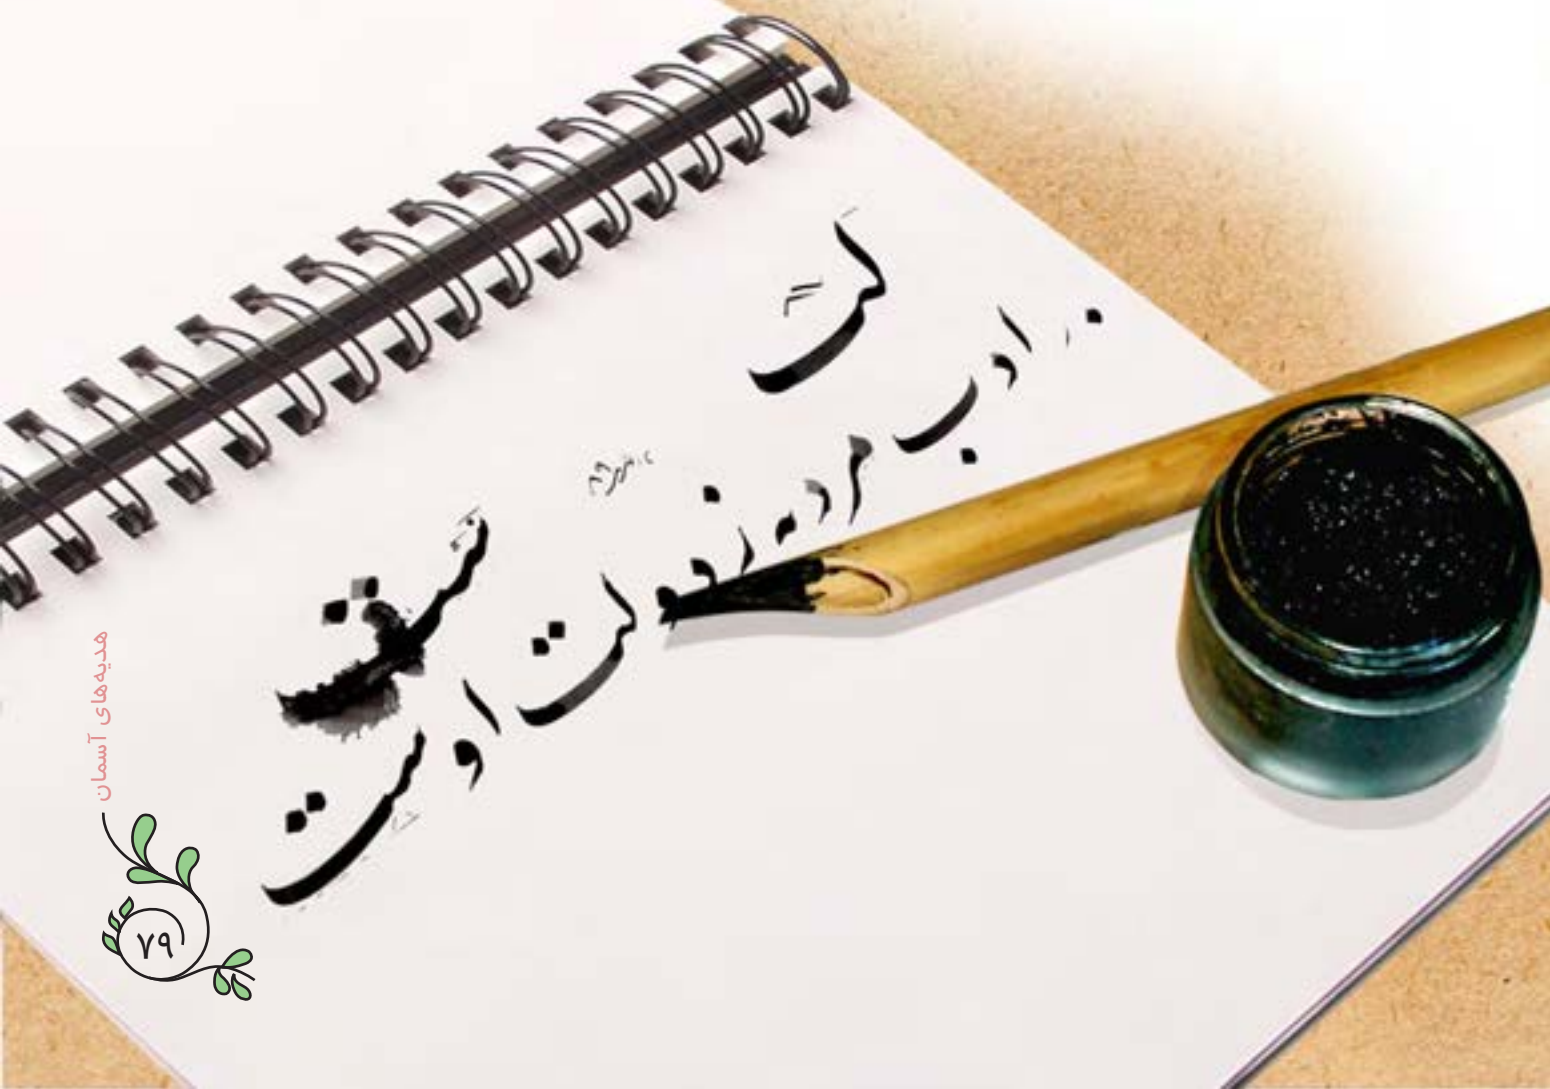 لت
ادب مرد به ز دولت اوست
ست
هدیه‌های آسمان
۷۹